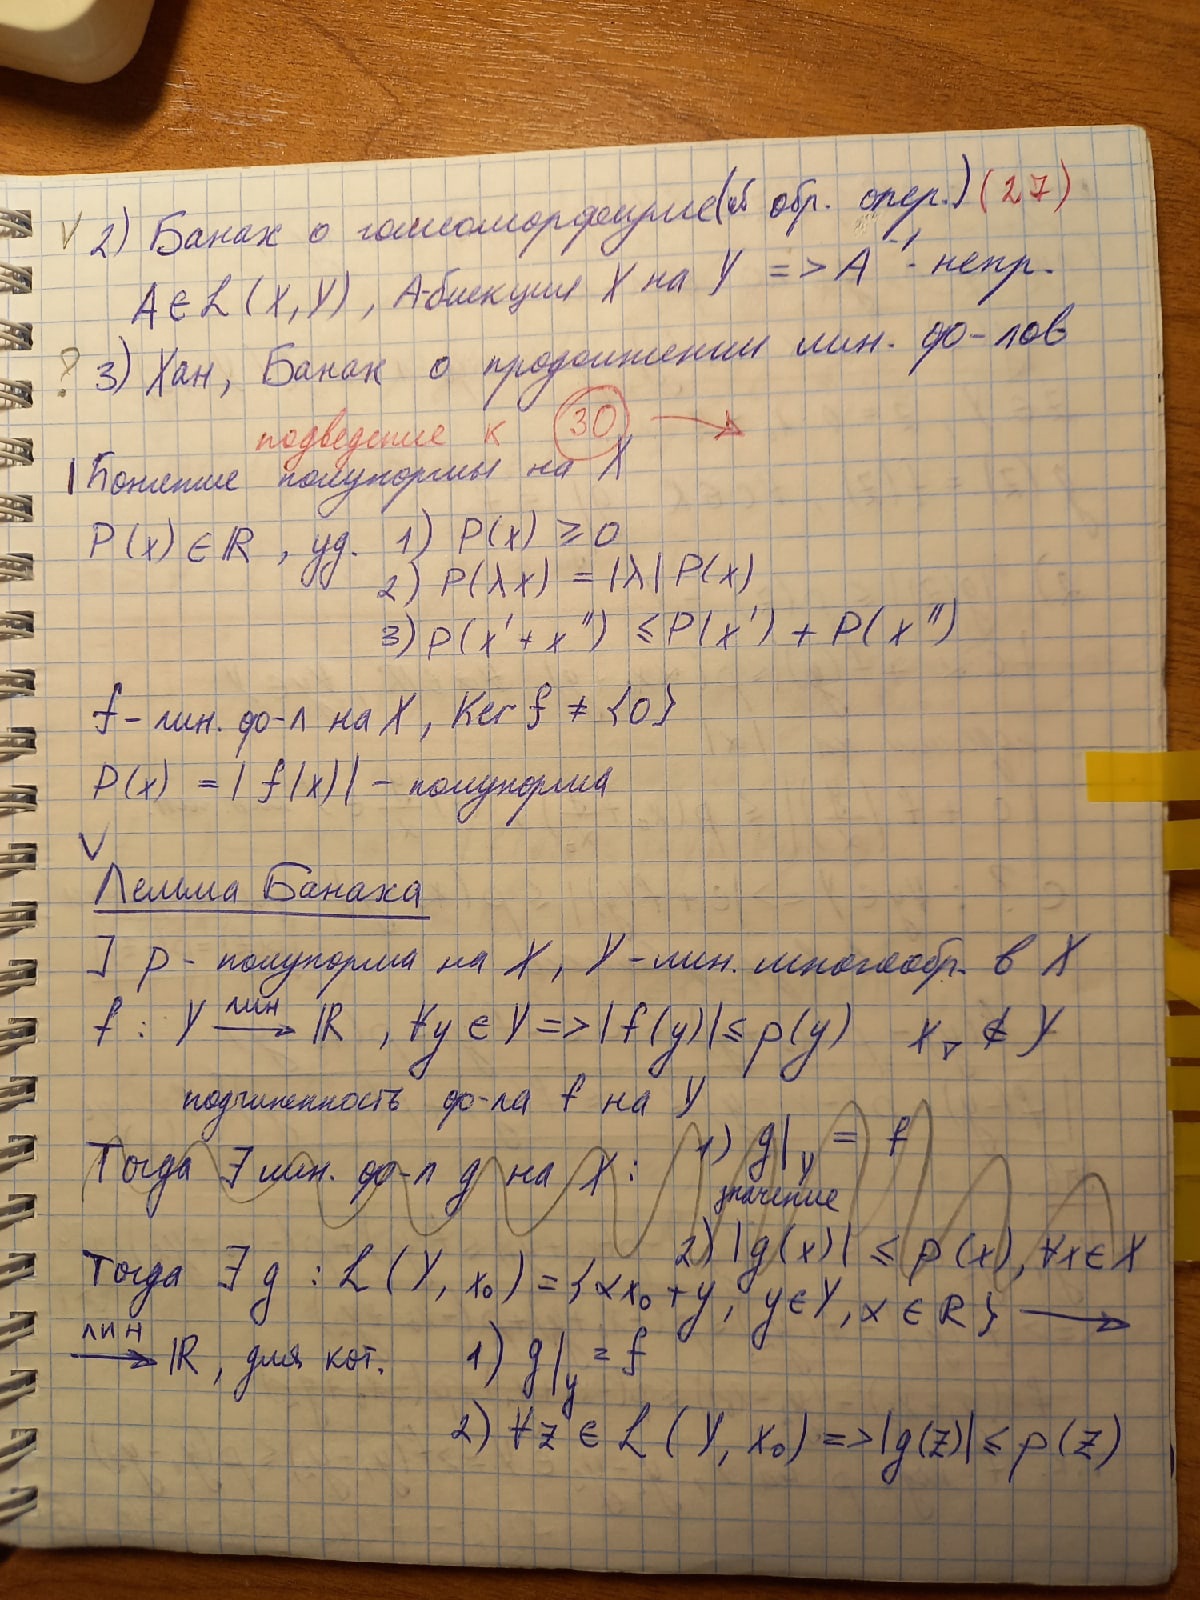 V 2) Банах о гомеоморфизме (об обр. опер.) (27)
A ∈ L(X,Y), A-биекция X на Y => A⁻¹- непр.
? 3) Хан, Банах о продолжении лин. ф-лов
подведение к 30 →
Понятие полунормы на X
P(x) ∈ ℝ, уд. 1) P(x) ⩾ 0
2) P(λx) = |λ| P(x)
3) P(x' + x'') ⩽ P(x') + P(x'')
f - лин. ф-л на X, Ker f ≠ {0}
P(x) = |f(x)| - полунорма
V
Лемма Банаха
] p - полунорма на X, Y - лин. многообр. в X
f : Y лин→ ℝ, ∀y ∈ Y => |f(y)| ⩽ p(y) x₀ ∉ Y
подчиненность ф-ла f на Y
Тогда ∃ лин. ф-л g на X : 1) g|_Y = f
значение
2) |g(x)| ⩽ p(x), ∀x ∈ X
Тогда ∃ g : L(Y, x₀) = {αx₀ + y, y ∈ Y, α ∈ ℝ} →
лин→ ℝ, для кот. 1) g|_Y = f
2) ∀z ∈ L(Y, x₀) => |g(z)| ⩽ p(z)